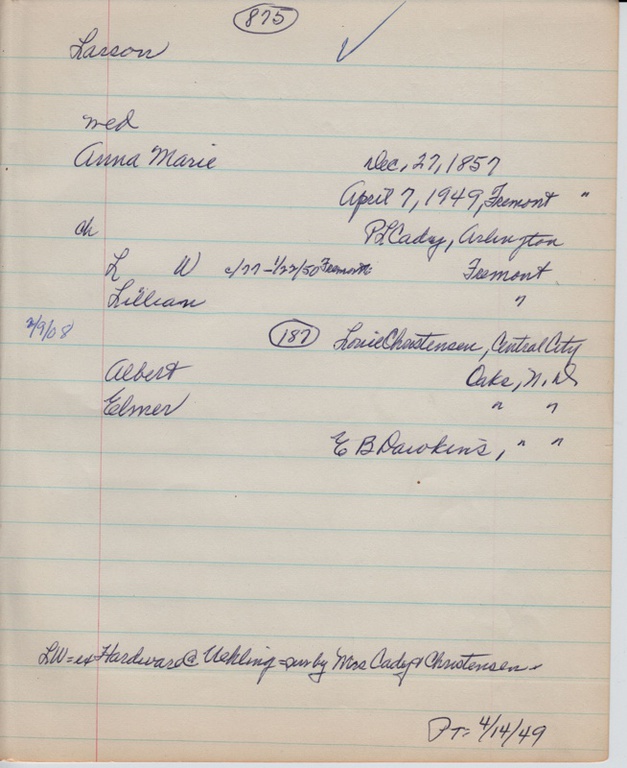 875
Larson
med
Anna Marie Dec, 27, 1857
April 7, 1949, Fremont "
ch P L Cady, Arlington
L W c/77-1/22/50 Fremont Fremont
Lillian "
2/9/08 187 Louie Christensen, Central City
Albert Oaks, N. D
Elmer " "
E B Dawkins, " "
LW = ex Hardware @ Uehling = sur by Mrs Cady & Christensen
PT = 4/14/49